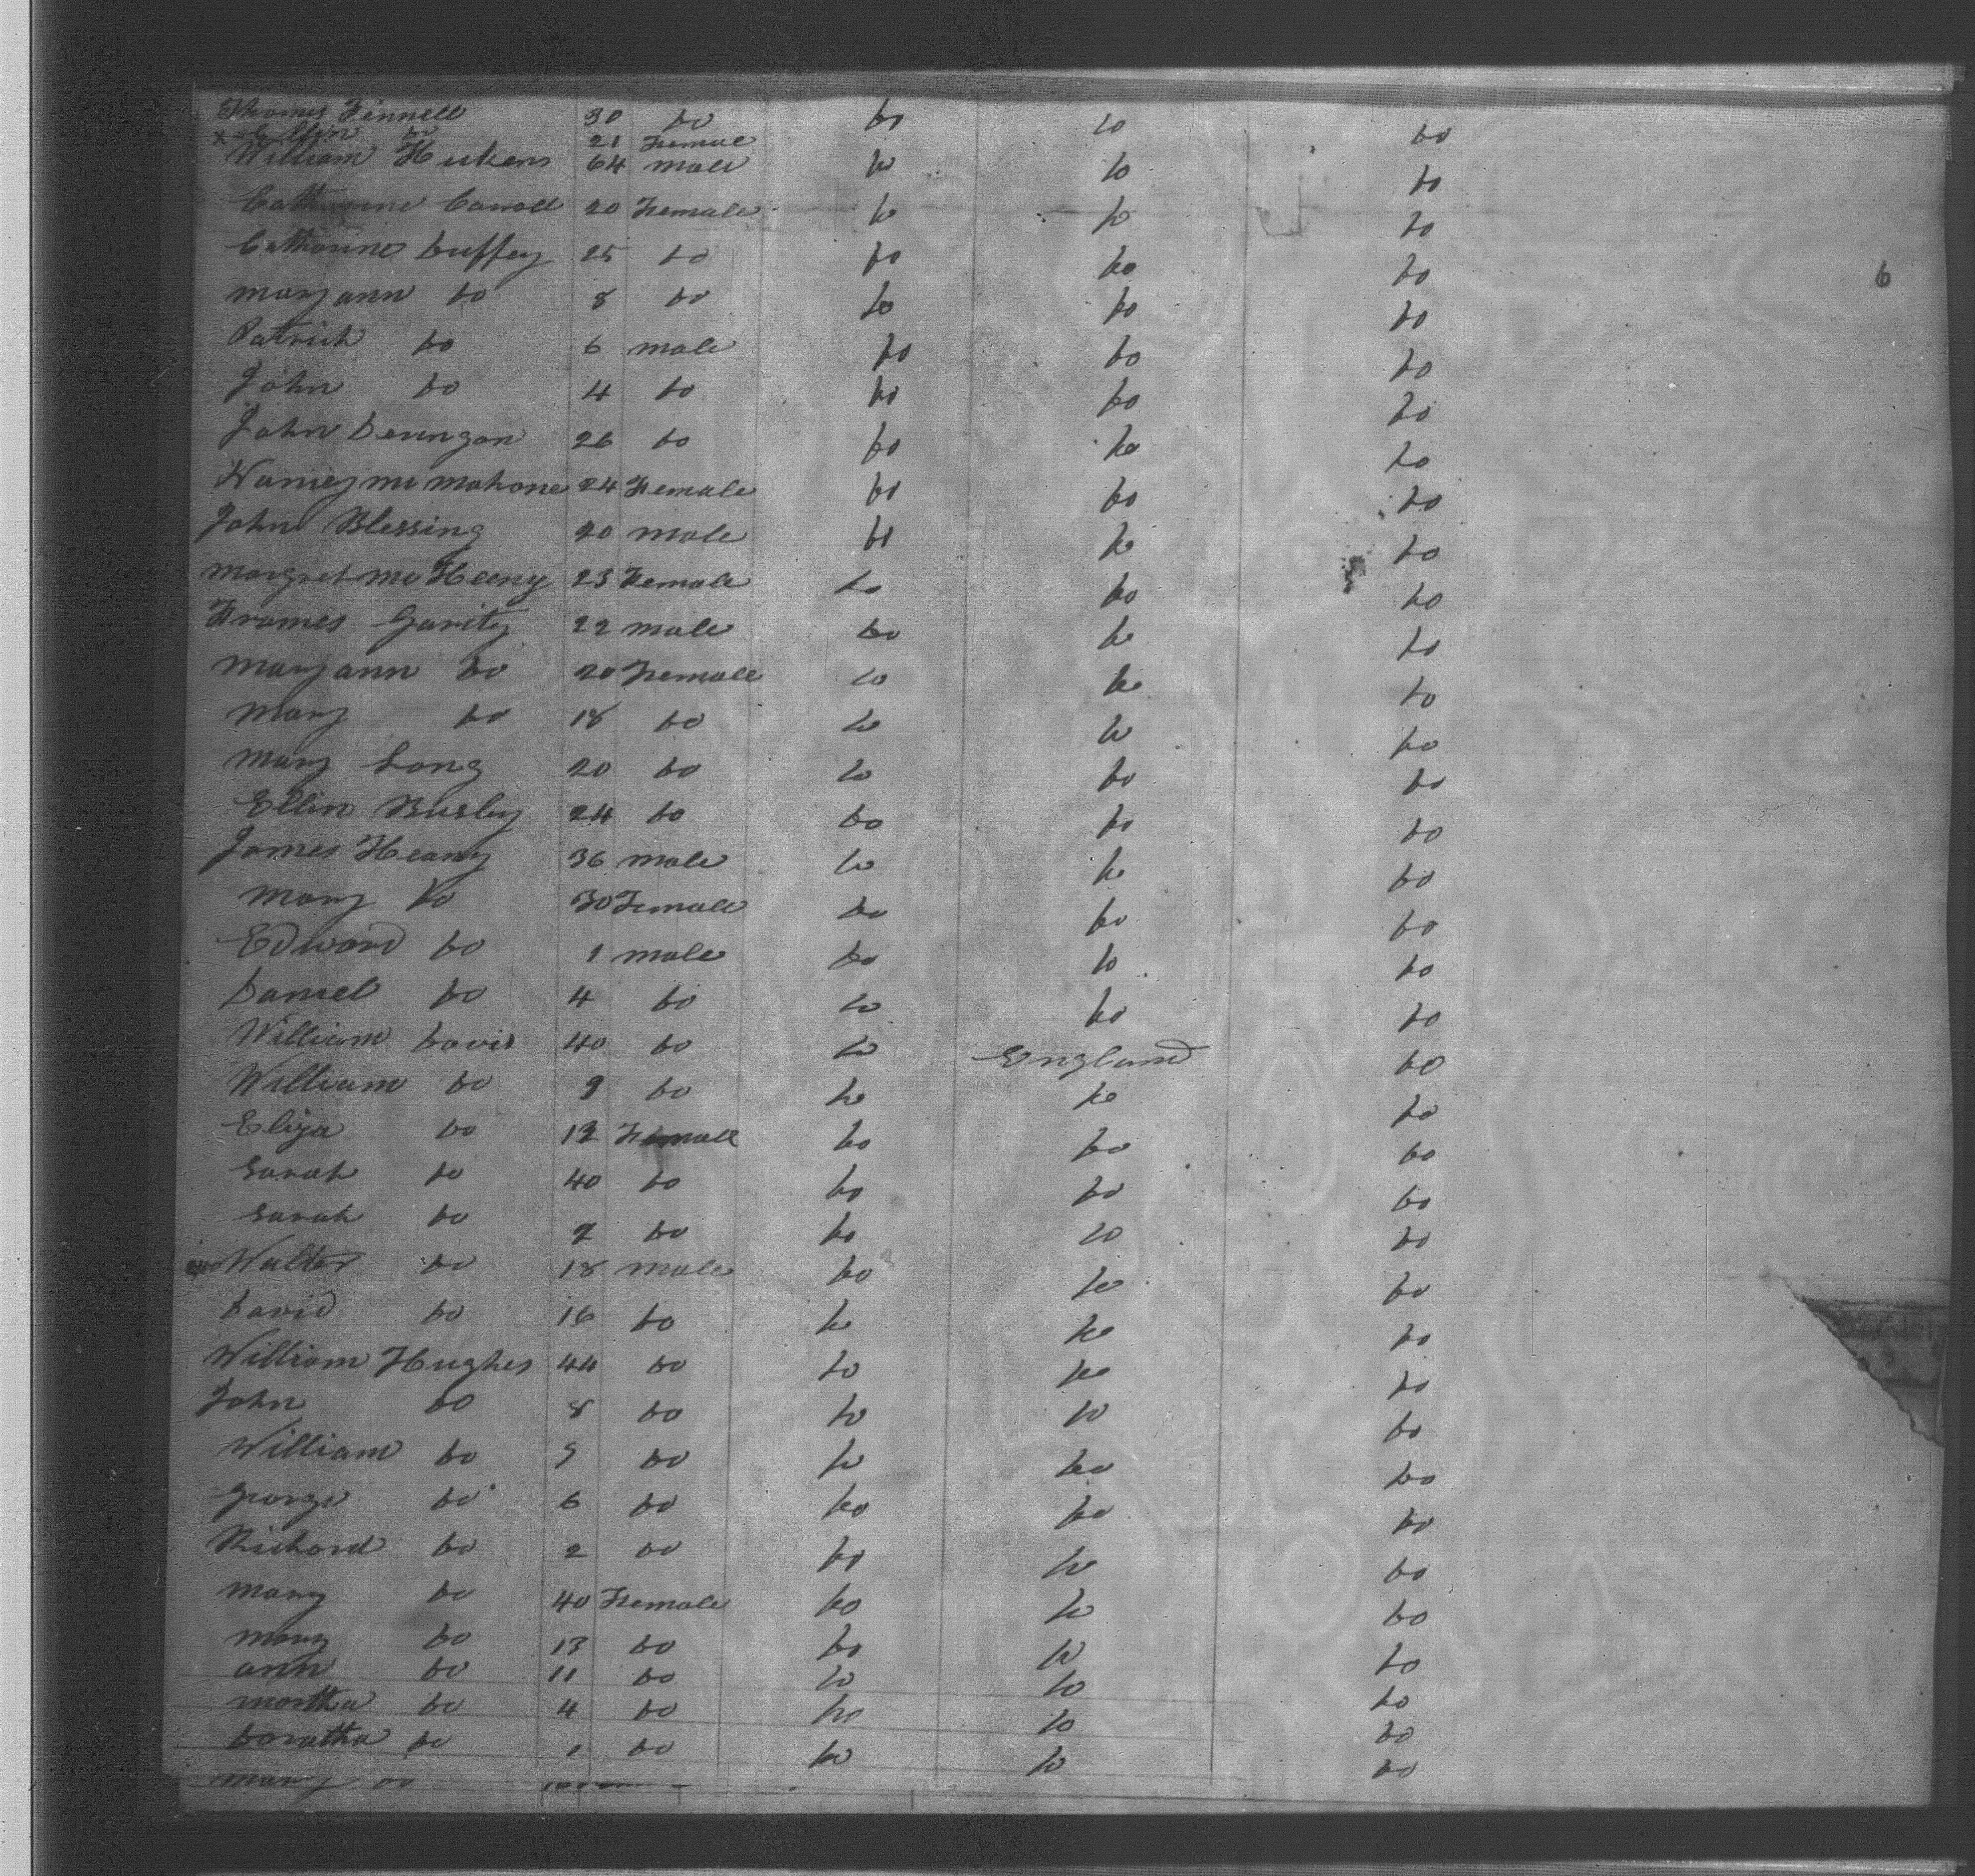 Thomas Finnell 30 Do Do Do Do
x Ellin Do 21 Female
William Huskens 64 male Do Do Do
Catherine Carroll 20 Female Do Do Do
Catharine Duffey 25 Do Do Do Do
mary ann Do 8 Do Do Do Do
6
Patrick Do 6 male Do Do Do
John Do 4 Do Do Do Do
John Denngan 26 Do Do Do Do
Naniey mc mahone 24 Female Do Do Do
John Blessing 20 male Do Do Do
margret mc Heeny 23 Female Do Do Do
Frames Garity 22 male Do Do Do
mary ann Do 20 Female Do Do Do
mary Do 18 Do Do Do Do
mary Long 20 Do Do Do Do
Ellin Busley 24 Do Do Do Do
James Heany 36 male Do Do Do
mary Do 30 Female Do Do Do
Edward Do 1 male Do Do Do
Daniel Do 4 Do Do Do Do
William Davis 40 Do Do England Do
William Do 9 Do Do Do Do
Eliza Do 12 Female Do Do Do
Sarah Do 40 Do Do Do Do
Sarah Do 7 Do Do Do Do
Walter Do 18 male Do Do Do
David Do 16 Do Do Do Do
William Hughes 44 Do Do Do Do
John Do 8 Do Do Do Do
William Do 5 Do Do Do Do
George Do 6 Do Do Do Do
Richard Do 2 Do Do Do Do
mary Do 40 Female Do Do Do
mary Do 13 Do Do Do Do
ann Do 11 Do Do Do Do
martha Do 4 Do Do Do Do
Doratha Do 1 Do Do Do Do
mary Do